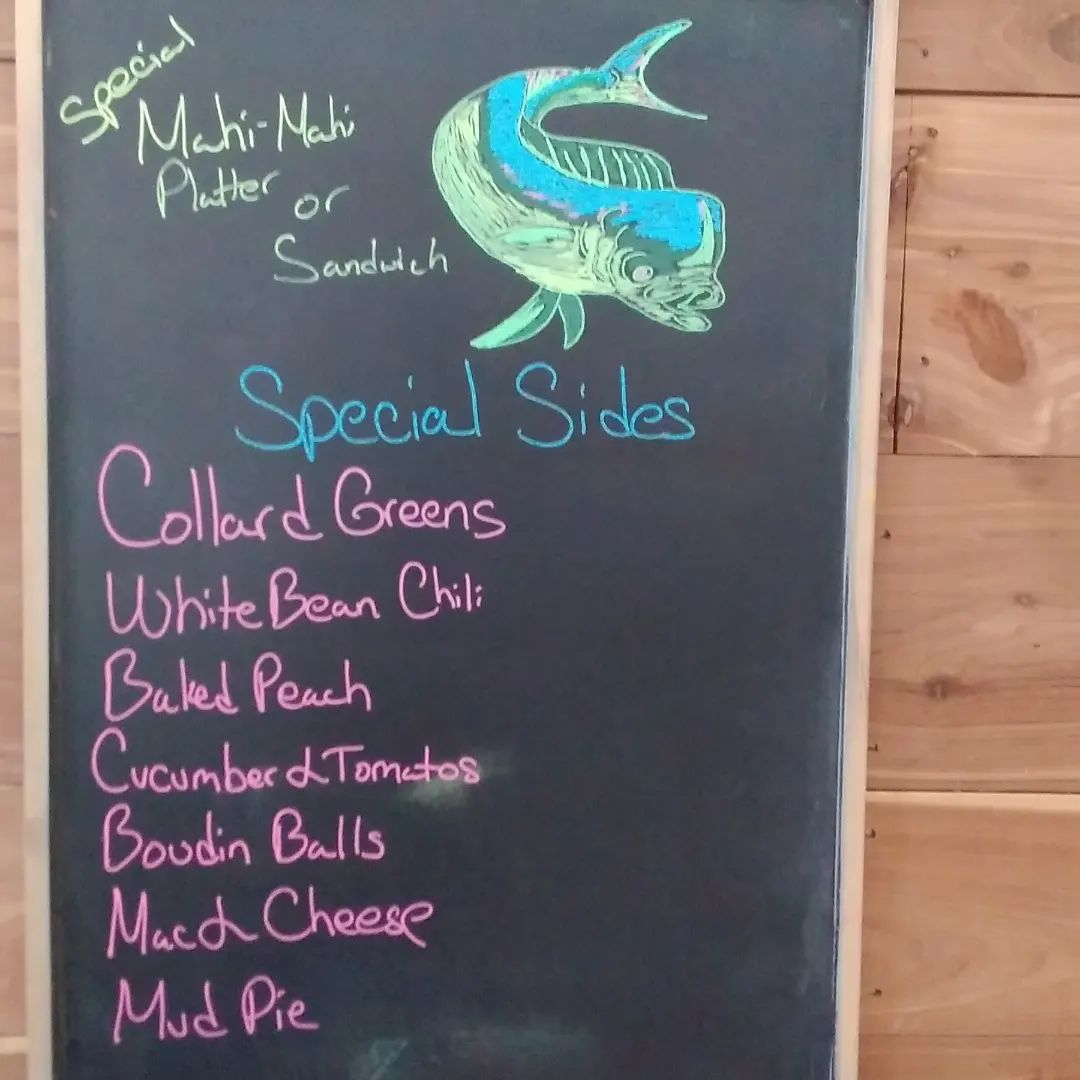 Special
Mahi-Mahi
Platter or
Sandwich
Special Sides
Collard Greens
White Bean Chili
Baked Peach
Cucumber & Tomatos
Boudin Balls
Mac & Cheese
Mud Pie